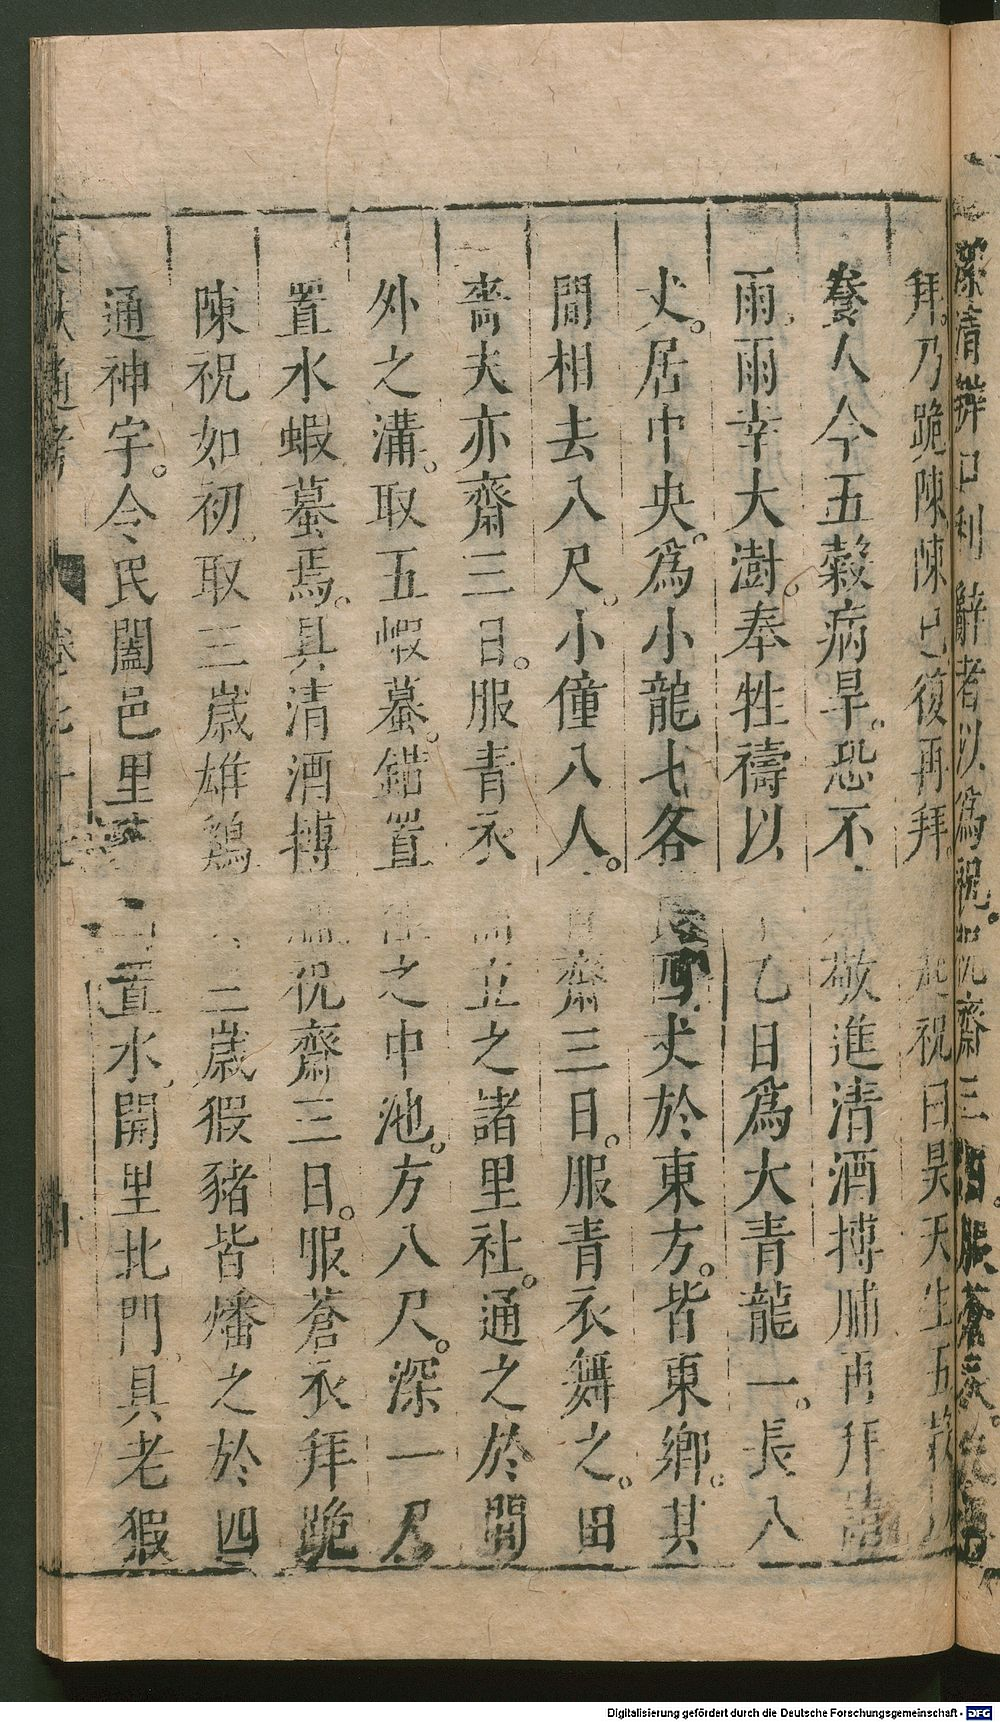 潔清辯口利辭者以爲祝。祝齋三日服蒼衣。
拜。乃跪陳陳已復再拜。起祝曰昊天生五穀以
養人今五穀病旱。恐不敬進清酒搏脯再拜請
雨。雨幸大澍。奉牲禱以乙日爲大青龍一。長八
丈。居中央。爲小龍七各四丈於東方。皆東鄉。其
間相去八尺。小僮八人。齋三日。服青衣舞之。田
嗇夫亦齋三日。服青衣立之諸里社。通之於閭
外之溝。取五蝦蟇。錯置之中池。方八尺。深一尺
置水蝦蟇焉。具清酒搏脯祝齋三日。服蒼衣拜跪
陳祝如初。取三歲雄鷄三歲猳豬皆燔之於四
通神宇。令民闔邑里置水開里北門具老猳
文獻通考 卷七十七
Digitalisierung gefördert durch die Deutsche Forschungsgemeinschaft - DFG